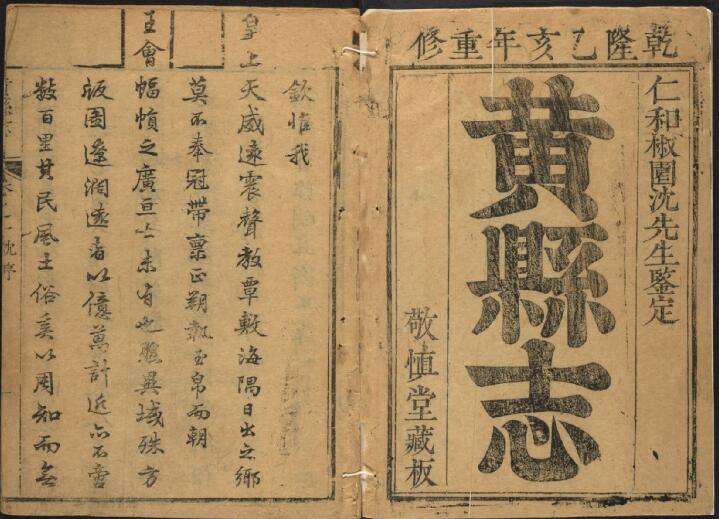 乾隆乙亥年重修
仁和椒園沈先生鑒定
黃縣志
敬慎堂藏板
欽惟我
皇上天威遠震聲教覃敷海隅日出之鄉
莫不奉冠帶稟正朔執玉帛而朝
王會幅幀之廣亘古未有也雖異域殊方
版圖遼濶遠者以億萬計近亦不啻
數百里其民風土俗奚以周知而無
沈序